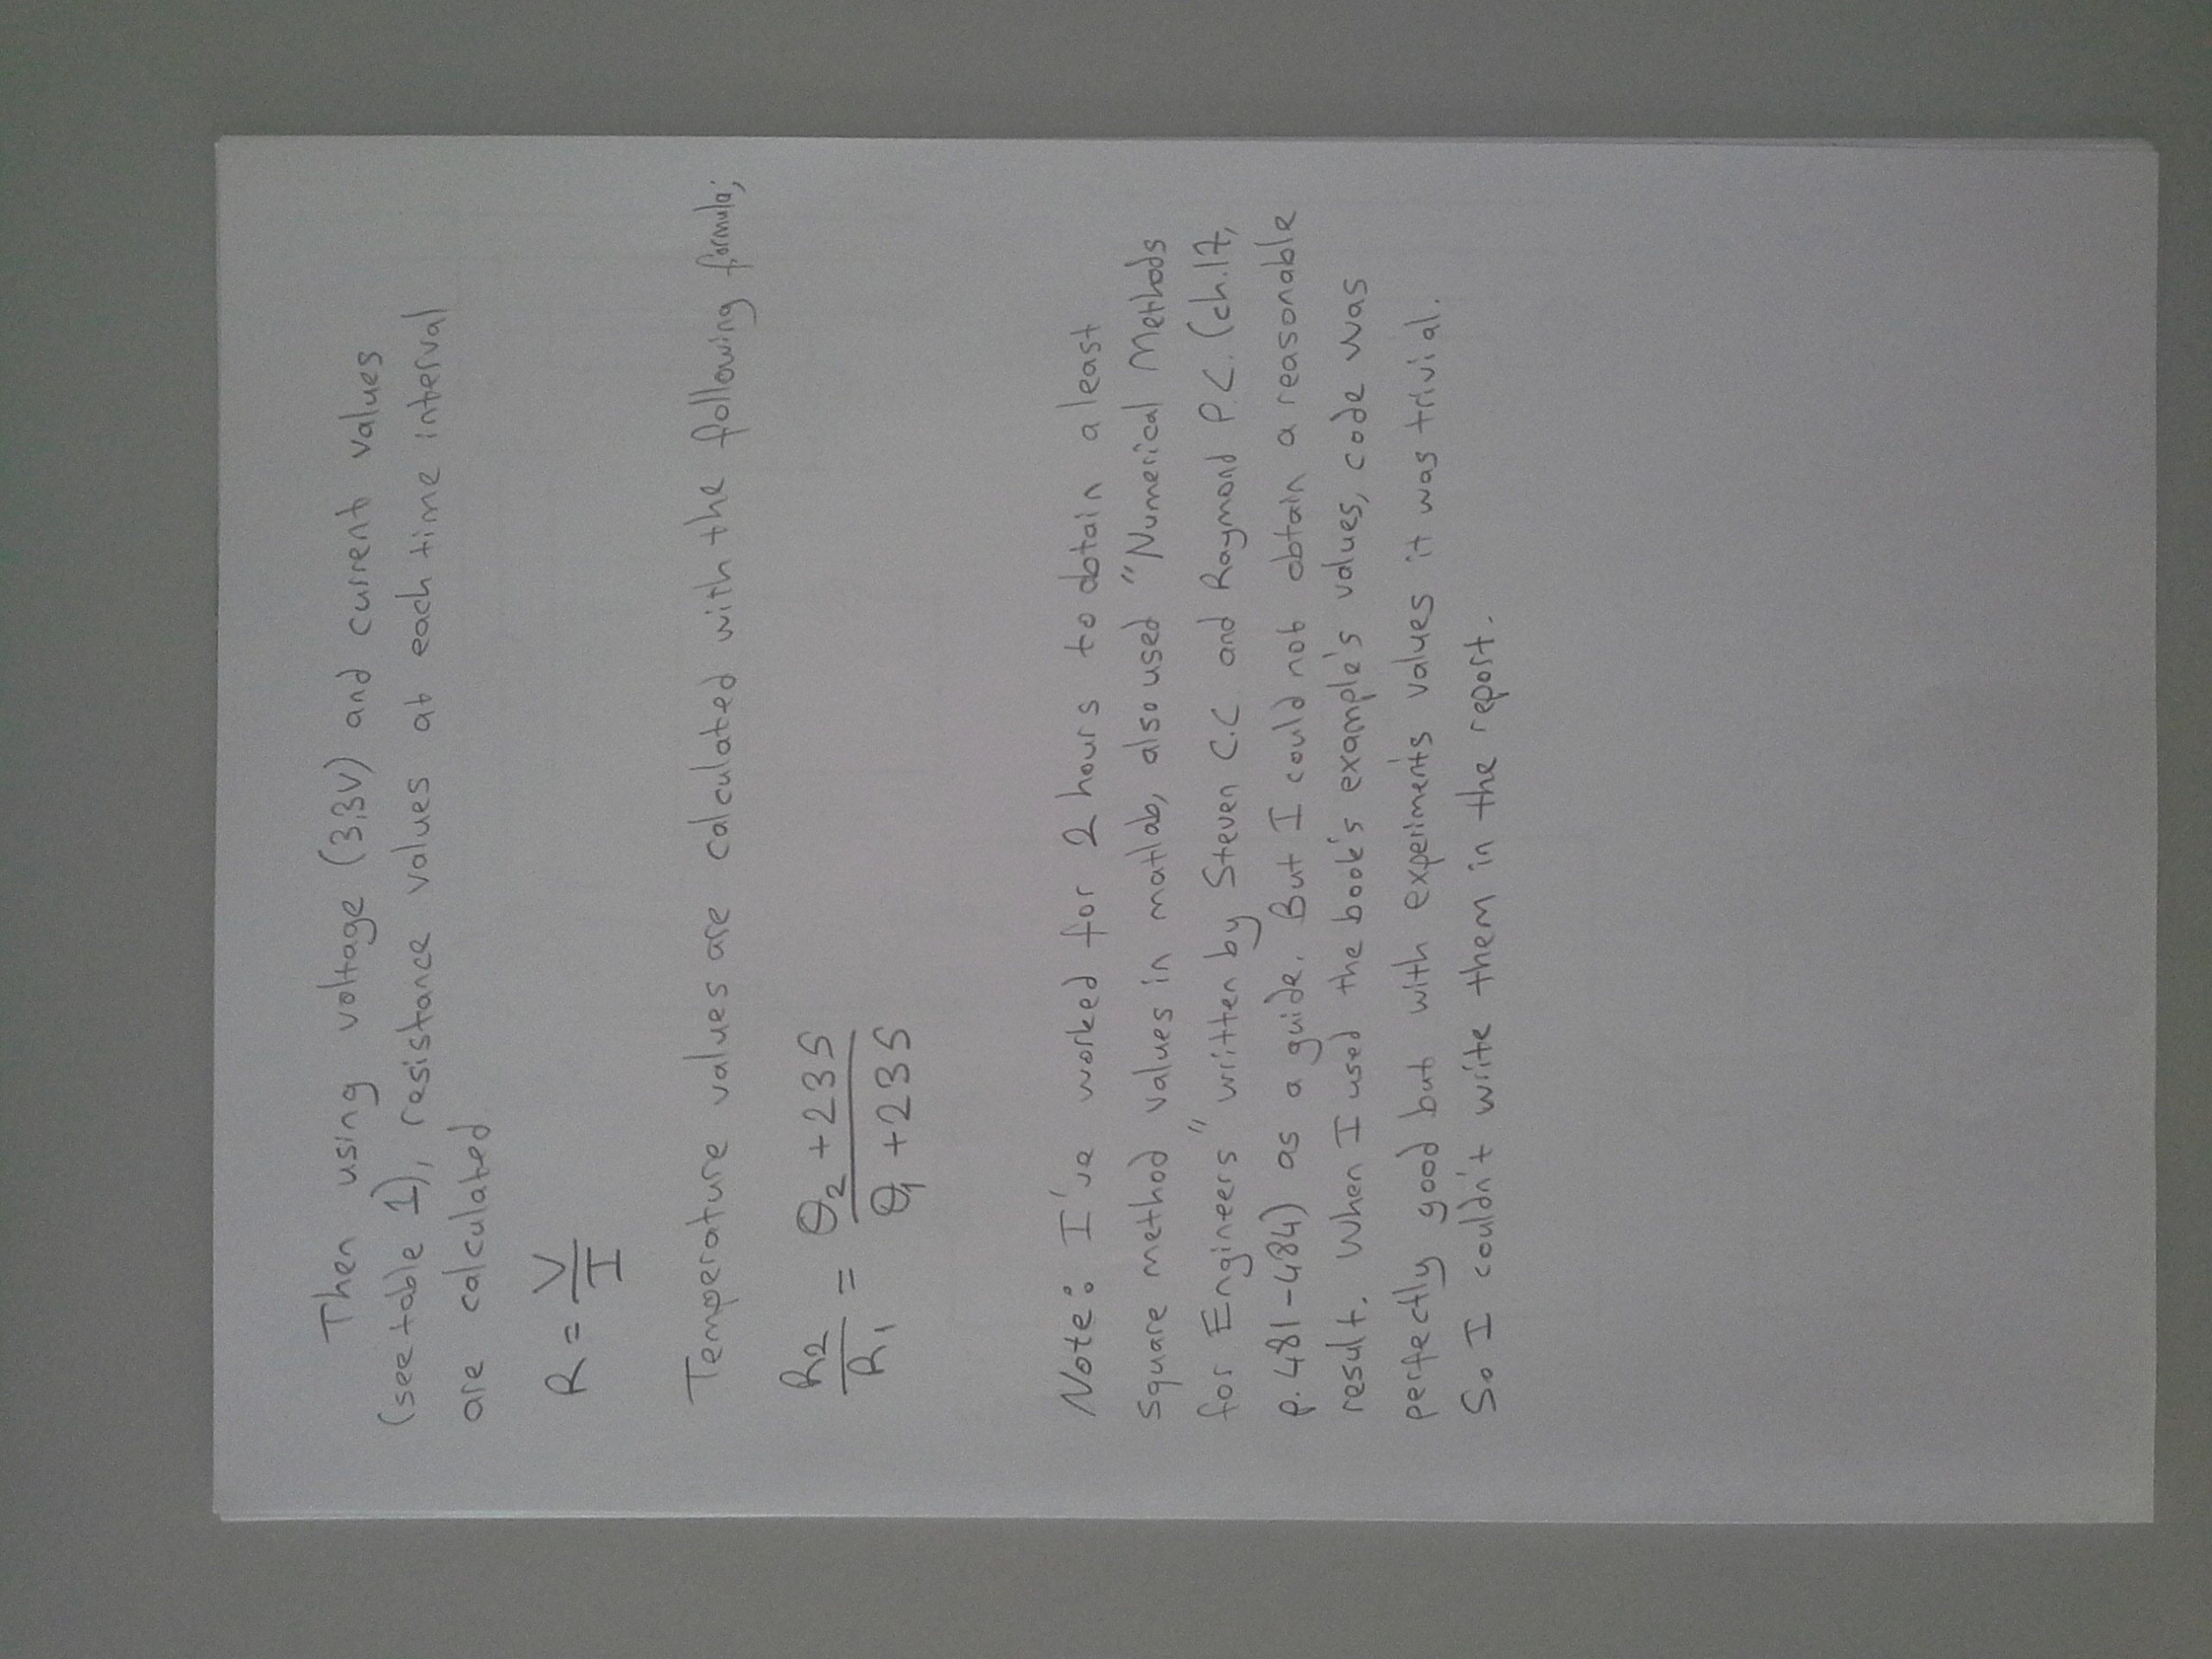 Then using voltage (3,3V) and current values
(see table 1), resistance values at each time interval
are calculated.
R = V/I
Temperature values are calculated with the following formula;
R2/R1 = (θ2 + 235)/(θ1 + 235)
Note: I've worked for 2 hours to obtain a least
square method values in matlab, also used "Numerical Methods
for Engineers" written by Steven C.C and Raymond P.C. (ch.17,
p.481-484) as a guide. But I could not obtain a reasonable
result. When I used the book's example's values, code was
perfectly good but with experiments values it was trivial.
So I couldn't write them in the report.